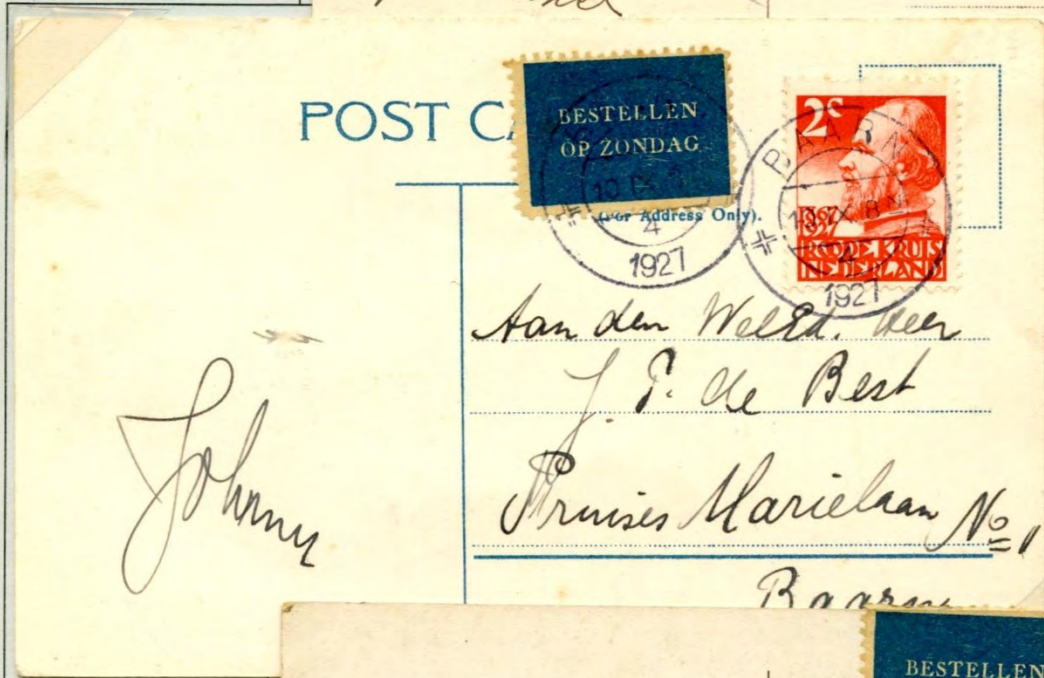 POST CA
BESTELLEN
OP ZONDAG
(For Address Only).
1927
4
2c
BAARN
4
1927
1867
1927
ROODE KRUIS
NEDERLAND
Aan den WelEd. Heer
J. P. de Best
Prinses Marielaan No 1
Baarn
Johnny
BESTELLEN